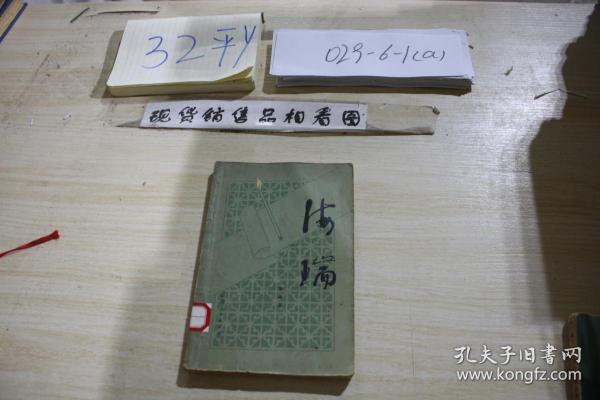 32平y
029-6-1(a)
现货销售品相看图
海瑞
孔夫子旧书网
www.kongfz.com